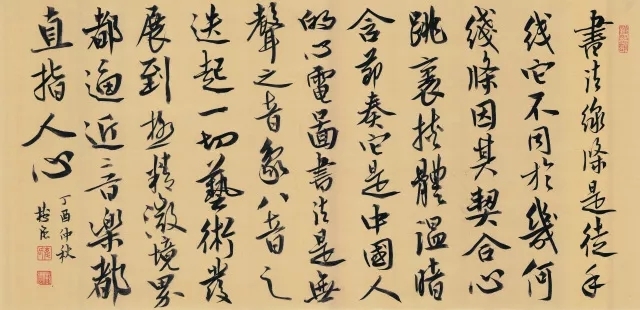 書法線條是徒手
线它不同於幾何
綫條因其契合心
跳裹挾體温暗
含節奏它是中國人
的心電圖書法是無
聲之音象八音之
迭起一切藝術發
展到極精微境界
都逼近音樂都
直指人心
丁酉仲秋